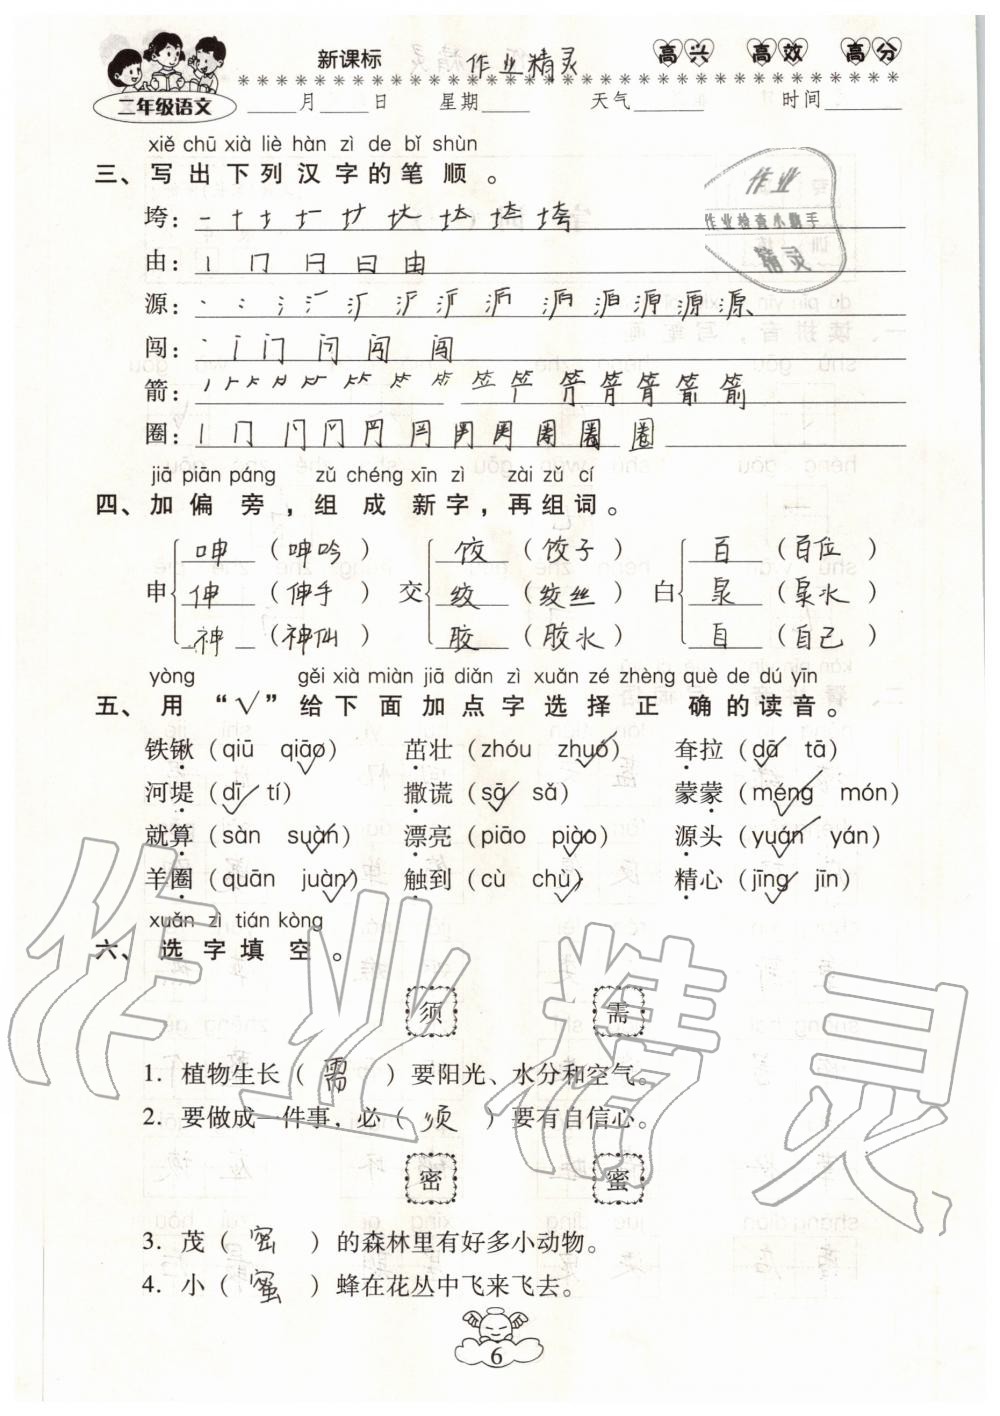 新课标 作业精灵 高兴 高效 高分
二年级语文 ____月____日 星期____ 天气______ 时间______
xiě chū xià liè hàn zì de bǐ shùn
三、写出下列汉字的笔顺。
作业
作业检查小助手
精灵
垮：
由：丨 冂 日 由 由
源：
闯：
箭：
圈：
jiā piān páng zǔ chéng xīn zì zài zǔ cí
四、加偏旁，组成新字，再组词。
呻（呻吟） 饺（饺子） 百（百位）
申 伸（伸手） 交 绞（绞丝） 白 泉（泉水）
神（神仙） 胶（胶水） 自（自己）
yòng gěi xià miàn jiā diǎn zì xuǎn zé zhèng què de dú yīn
五、用“√”给下面加点字选择正确的读音。
铁锹（qiū qiāo√） 茁壮（zhóu zhuó√） 耷拉（dā√ tā）
河堤（dī√ tí） 撒谎（sā√ sǎ） 蒙蒙（méng√ món）
就算（sàn suàn√） 漂亮（piāo piào√） 源头（yuán√ yán）
羊圈（quān juàn√） 触到（cù chù√） 精心（jīng√ jīn）
xuǎn zì tián kòng
六、选字填空。
须 需
1. 植物生长（需）要阳光、水分和空气。
2. 要做成一件事，必（须）要有自信心。
密 蜜
3. 茂（密）的森林里有好多小动物。
4. 小（蜜）蜂在花丛中飞来飞去。
6
作业精灵